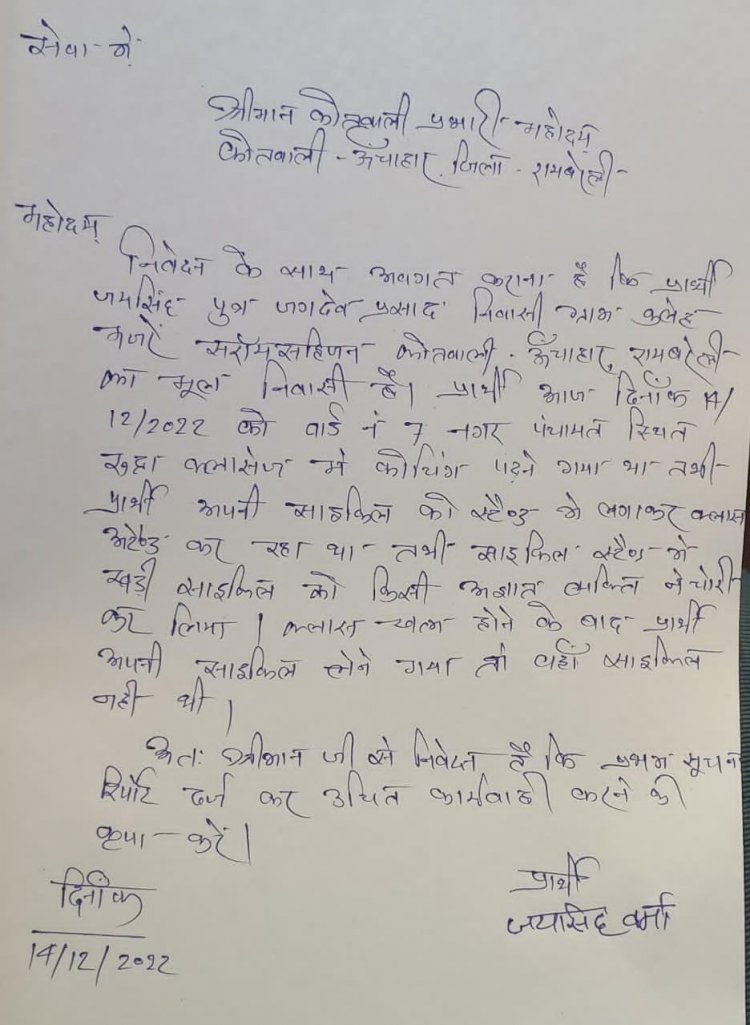 सेवा में
श्रीमान कोतवाली प्रभारी महोदय
कोतवाली - ऊँचाहार, जिला - रायबरेली
महोदय
निवेदन के साथ अवगत कराना है कि प्रार्थी
जयसिंह पुत्र जगदेव प्रसाद निवासी ग्राम कुलेह
मजरे सरायसहिजन कोतवाली - ऊँचाहार, रायबरेली
का मूल निवासी है। प्रार्थी आज दिनाँक 14/
12/2022 को वार्ड नं 7 नगर पंचायत स्थित
क्लासेज मे कोचिंग पढ़ने गया था तभी
प्रार्थी अपनी साइकिल को स्टैण्ड मे लगाकर क्लास
अटैण्ड कर रहा था तभी साइकिल स्टैण्ड मे
खड़ी साइकिल को किसी अज्ञात व्यक्ति ने चोरी
कर लिया। क्लास खत्म होने के बाद प्रार्थी
अपनी साइकिल लेने गया तो वहाँ साइकिल
नही थी।
अतः श्रीमान जी से निवेदन है कि प्रथम सूचना
रिपोर्ट दर्ज कर उचित कार्यवाही करने की
कृपा करें।
प्रार्थी
जयसिंह वर्मा
दिनाँक
14/12/2022